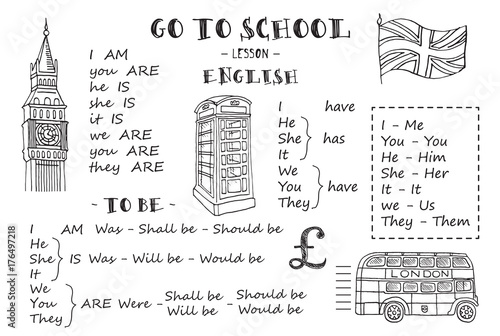 GO TO SCHOOL
- LESSON -
ENGLISH
I AM
you ARE
he IS
she IS
it IS
we ARE
you ARE
they ARE
I have
He
She has
It
We
You have
They
I - Me
You - You
He - Him
She - Her
It - It
we - Us
They - Them
- TO BE -
I AM Was - Shall be - Should be
He
She IS Was - Will be - Would be
It
We
You ARE Were - Shall be - Should be
They Will be Would be
£
LONDON
176497218